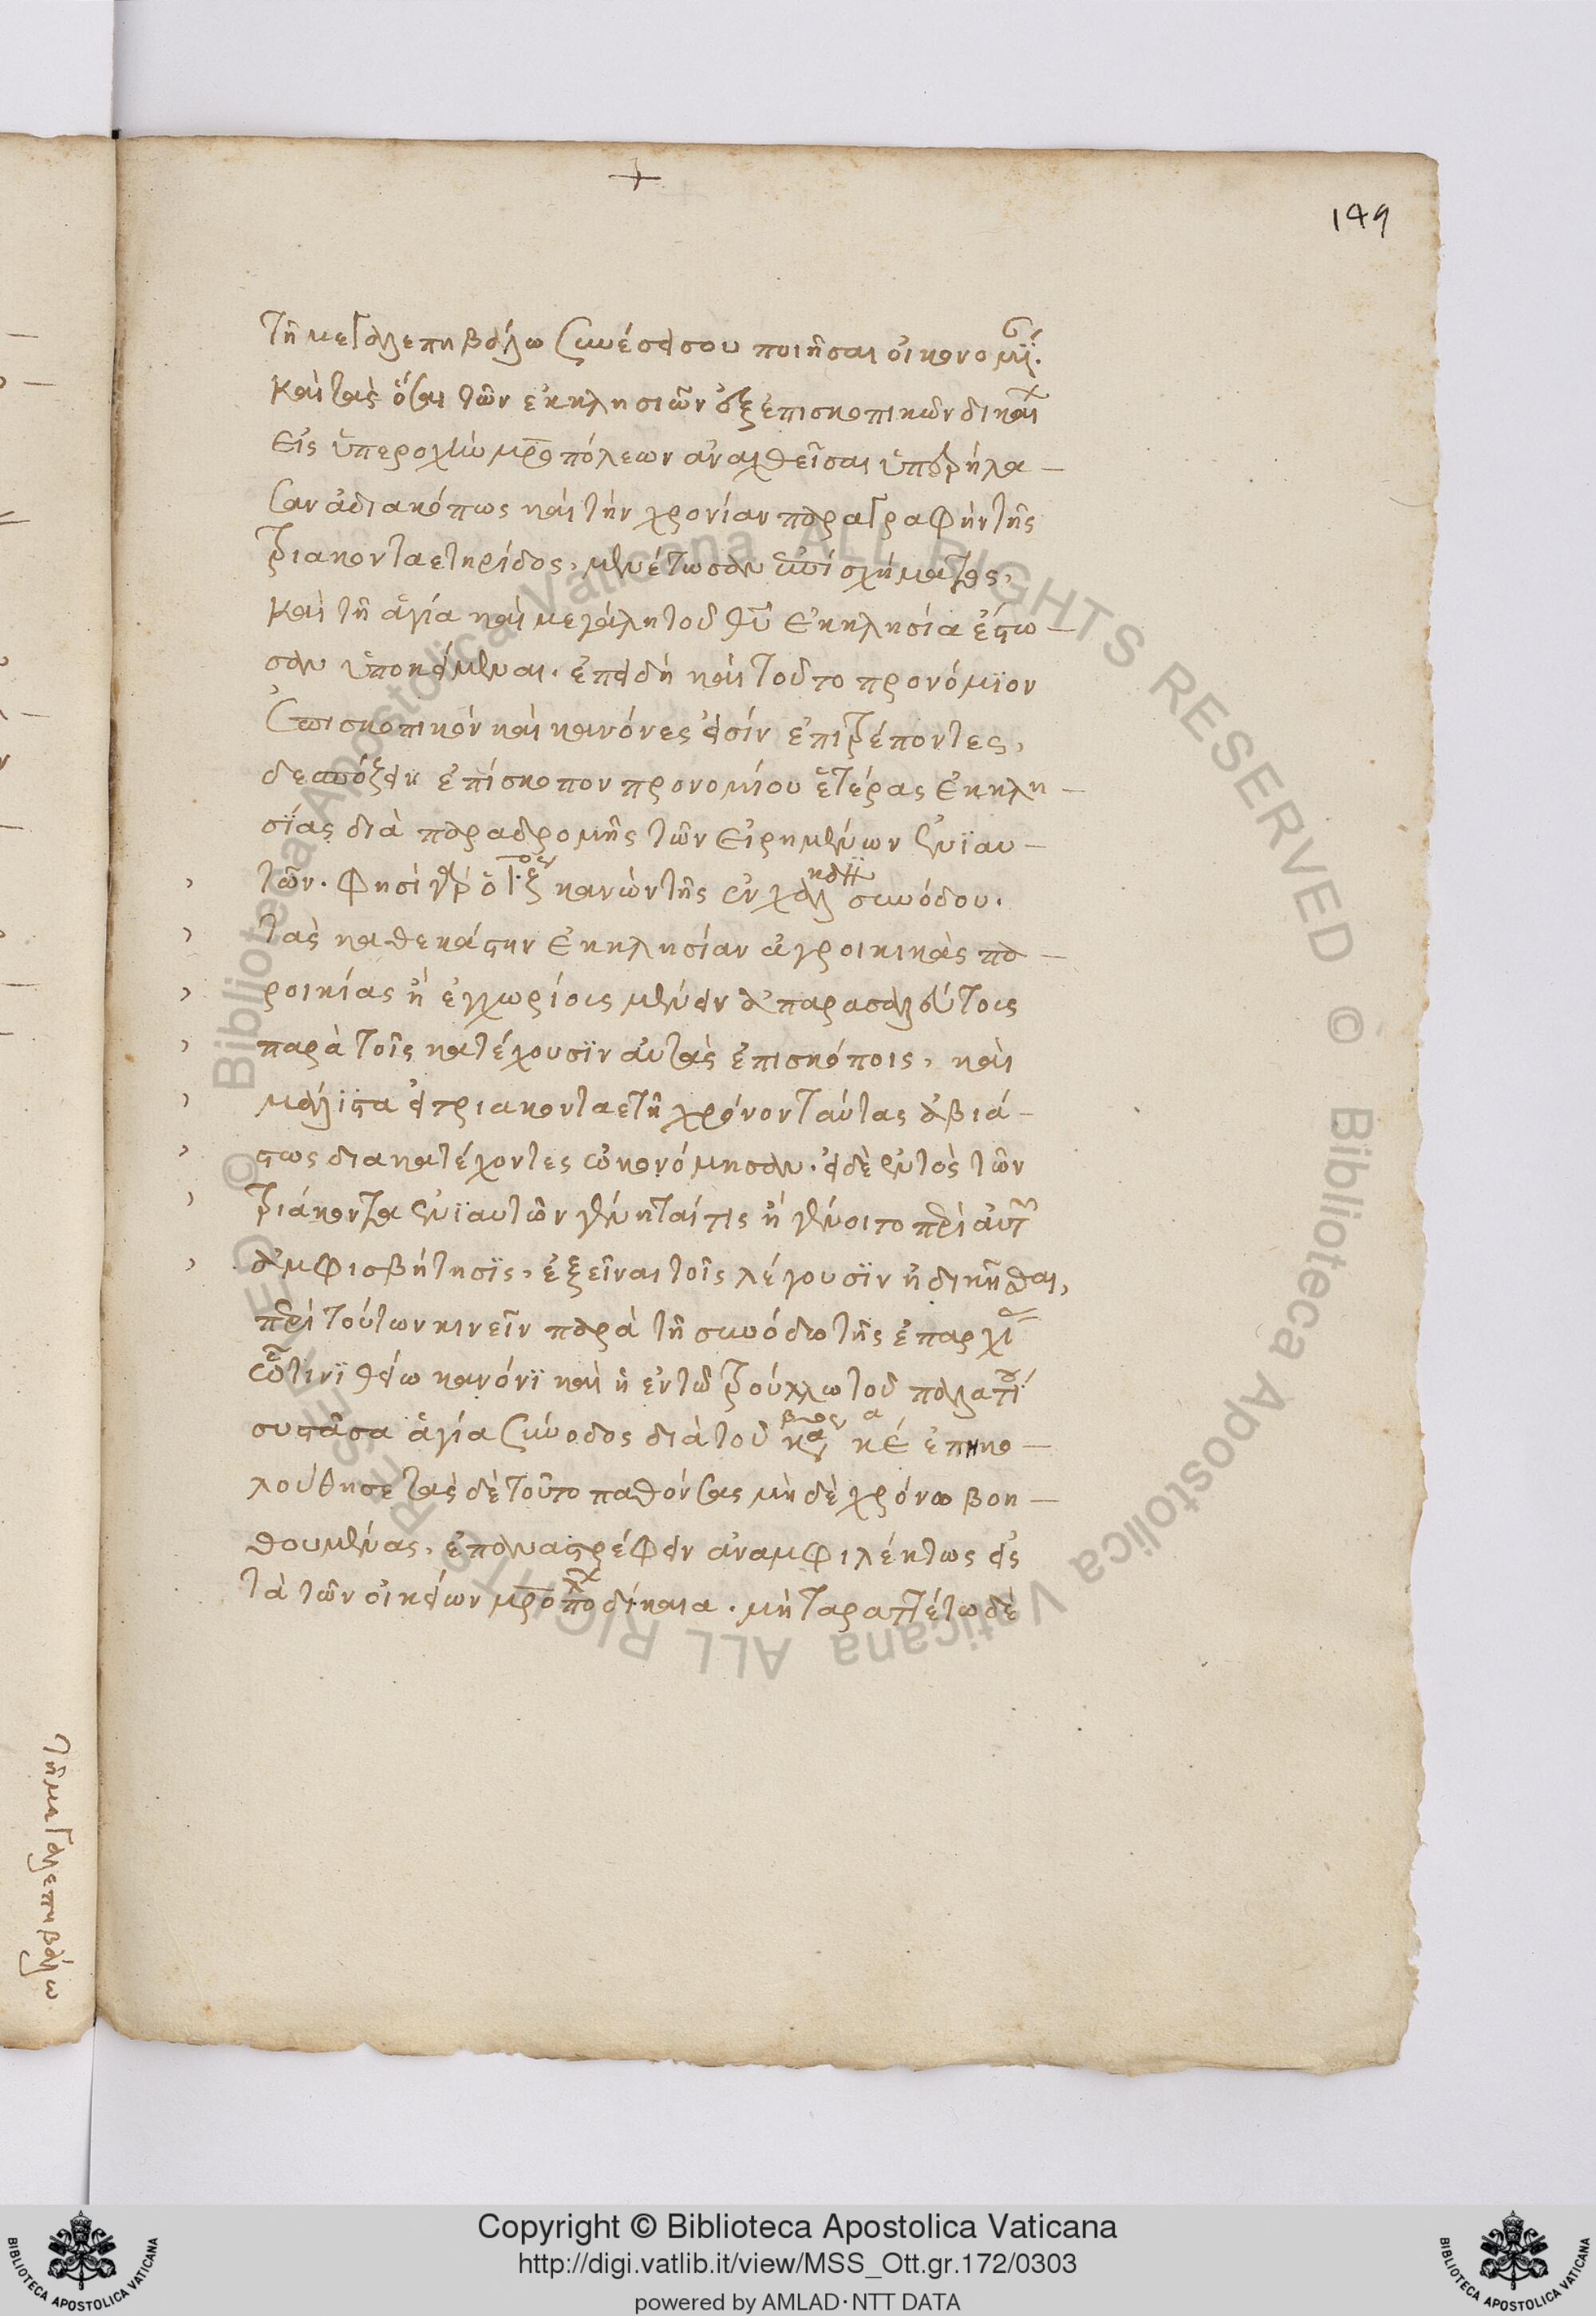 149
τῆ μεγαλεπηβόλω συνέσει σου ποιῆσαι οἰκονομί.
καὶ τὰς ὅσαι τῶν ἐκκλησιῶν ἐξ ἐπισκοπικῶν δικαί
εἰς ὑπεροχὴν μροπόλεων ἀναχθεῖσαι ὑπερήλα –
σαν ἀδιακόπως καὶ τὴν χρονίαν παραγραφὴν τῆς
τριακονταετηρίδος, μενέτωσαν ἐπὶ σχήματος,
καὶ τῆ ἁγία καὶ μεγάλη τοῦ θυ ἐκκλησία ἔστω –
σαν ὑποκείμεναι. ἐπειδὴ καὶ τοῦτο προνόμιον
ἐπισκοπικὸν καὶ κανόνες εἰσὶν ἐπιτρέποντες,
δεσπόζειν ἐπίσκοπον προνομίου ἑτέρας ἐκκλη –
σίας διὰ παραδρομῆς τῶν εἰρημένων ἐνιαυ –
τῶν. φησὶ γὰρ ὁ ιζ κανὼν τῆς ἐν χαλκηδ συνόδου.
τὰς καθεκάστην ἐκκλησίαν ἀγροικικὰς πα –
ροικίας ἢ ἐγχωρίοις μένειν ἀπαρασαλεύτοις
παρὰ τοῖς κατέχουσιν αὐτὰς ἐπισκόποις, καὶ
μάλιστα εἰ τριακονταετῆ χρόνον ταύτας ἀβιά –
στως διακατέχοντες ὠκονόμησαν. εἰ δὲ ἐντὸς τῶν
τριάκοντα ἐνιαυτῶν γένηταί τις ἢ γένοιτο περὶ αὐτ
ἀμφισβήτησις, ἐξεῖναι τοῖς λέγουσιν ἠδικῆσθαι,
περὶ τούτων κινεῖν παρὰ τῆ συνόδω τῆς ἐπαρχί
ὧτινι θείω κανόνι καὶ ἡ ἐν τῶ τρούλλω τοῦ παλατί
συστᾶσα ἁγία σύνοδος διὰ τοῦ κε ἐπηκο –
λούθησε τὰς δὲ τοῦτο παθούσας μὴ δὲ χρόνω βοη –
θουμένας, ἐπαναστρέφειν ἀναμφιλέκτως εἰς
τὰ τῶν οἰκείων μροπόλ δίκαια. μὴ ταραττέτω δὲ
τῆ μεγαλεπηβόλω
Copyright © Biblioteca Apostolica Vaticana
http://digi.vatlib.it/view/MSS_Ott.gr.172/0303
powered by AMLAD·NTT DATA